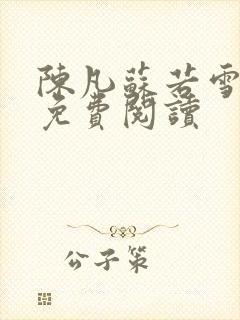 陳凡蘇若雪
免費閱讀
公子策